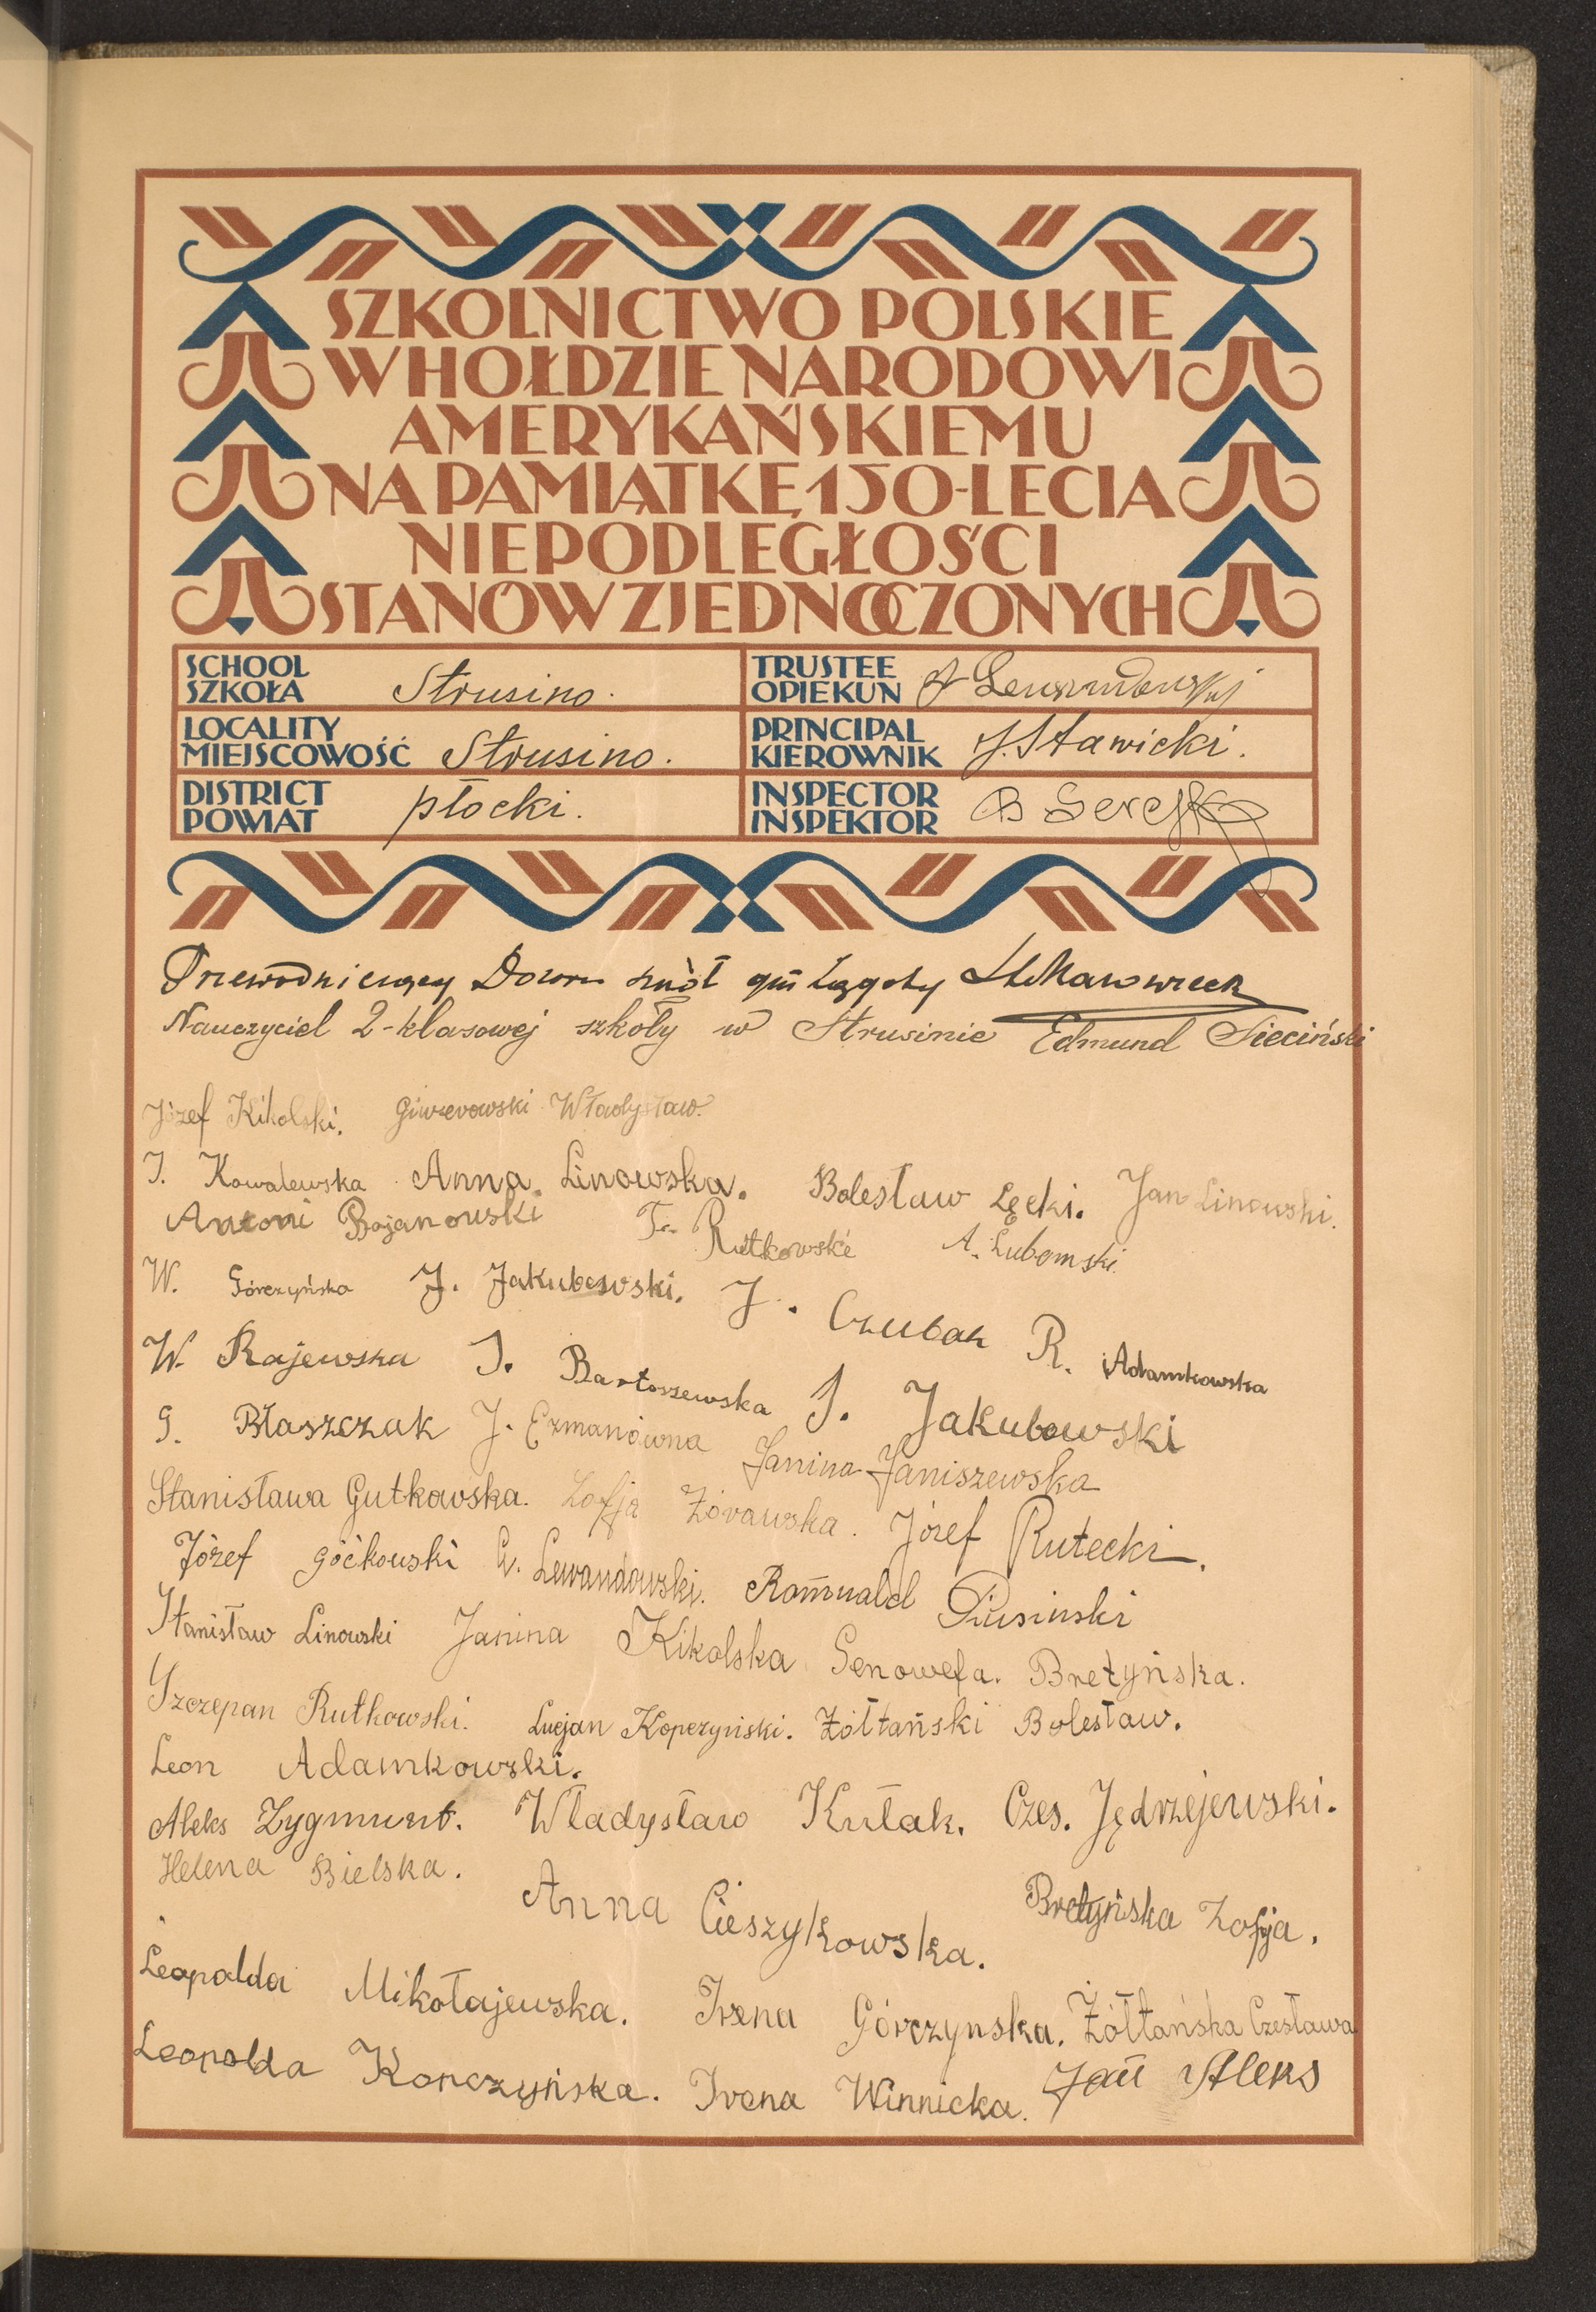 SZKOLNICTWO POLSKIE
W HOŁDZIE NARODOWI
AMERYKAŃSKIEMU
NA PAMIĄTKĘ 150-LECIA
NIEPODLEGŁOŚCI
STANÓW ZJEDNOCZONYCH
SCHOOL
SZKOŁA Strusino.
TRUSTEE
OPIEKUN
LOCALITY
MIEJSCOWOŚĆ Strusino.
PRINCIPAL
KIEROWNIK J. Stawicki.
DISTRICT
POWIAT płocki.
INSPECTOR
INSPEKTOR B
Przewodniczący Dozoru szkół gm Łągoty
Nauczyciel 2-klasowej szkoły w Strusinie Edmund Sieciński
Józef Kikolski. Władysław.
J. Kowalewska Anna Linowska. Bolesław Łęcki. Jan Linowski.
Antoni Bojanowski Fr. Rutkowski A. Lubomski.
W. Górczyńska J. Jakubowski. J. Czubak R. Adamkowska
W. Rajewska J. Bartoszewska J. Jakubowski
G. Błaszczak J. Ezmanówna Janina Janiszewska
Stanisława Gutkowska. Zofja Żórawska. Józef Rutecki.
Józef Góćkowski G. Lewandowski. Romuald Piusinski
Stanisław Linowski Janina Kikolska Genowefa. Breżyńska.
Szczepan Rutkowski. Lucjan Kopczyński. Żółtański Bolesław.
Leon Adamkowski.
Aleks Zygmunt. Władysław Kułak. Czes. Jędrzejewski.
Helena Bielska. Anna Cieszykowska. Breżyńska Zofja.
Leopolda Mikołajewska. Irena Górczynska. Żółtańska Czesława
Leopolda Kopczyńska. Irena Winnicka. Jan Aleks